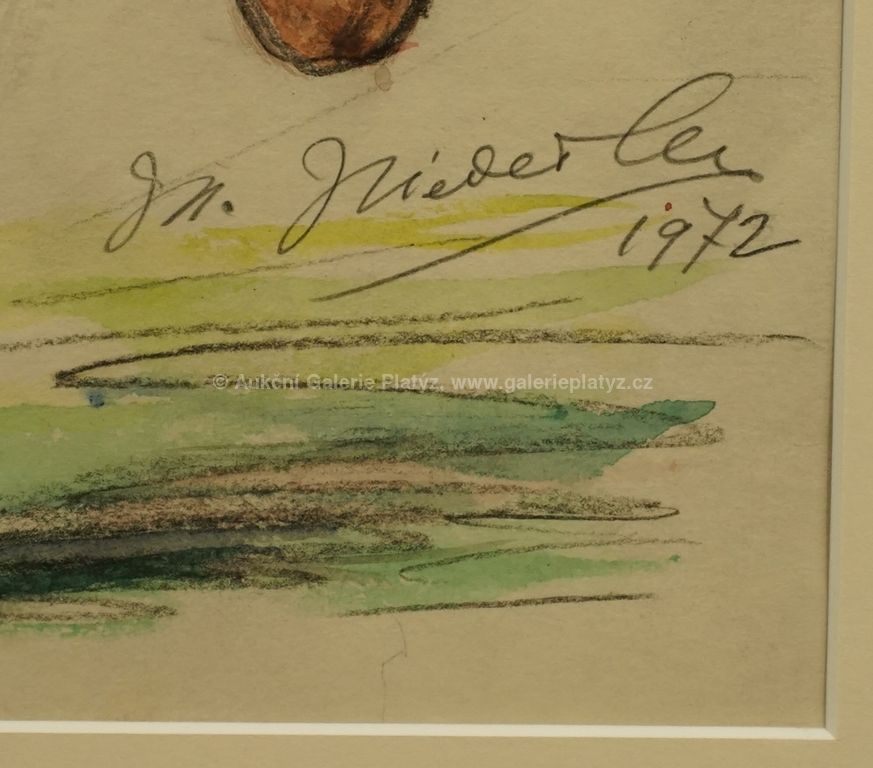 M. Niederle
1972
© Aukční Galerie Platýz, www.galerieplatyz.cz